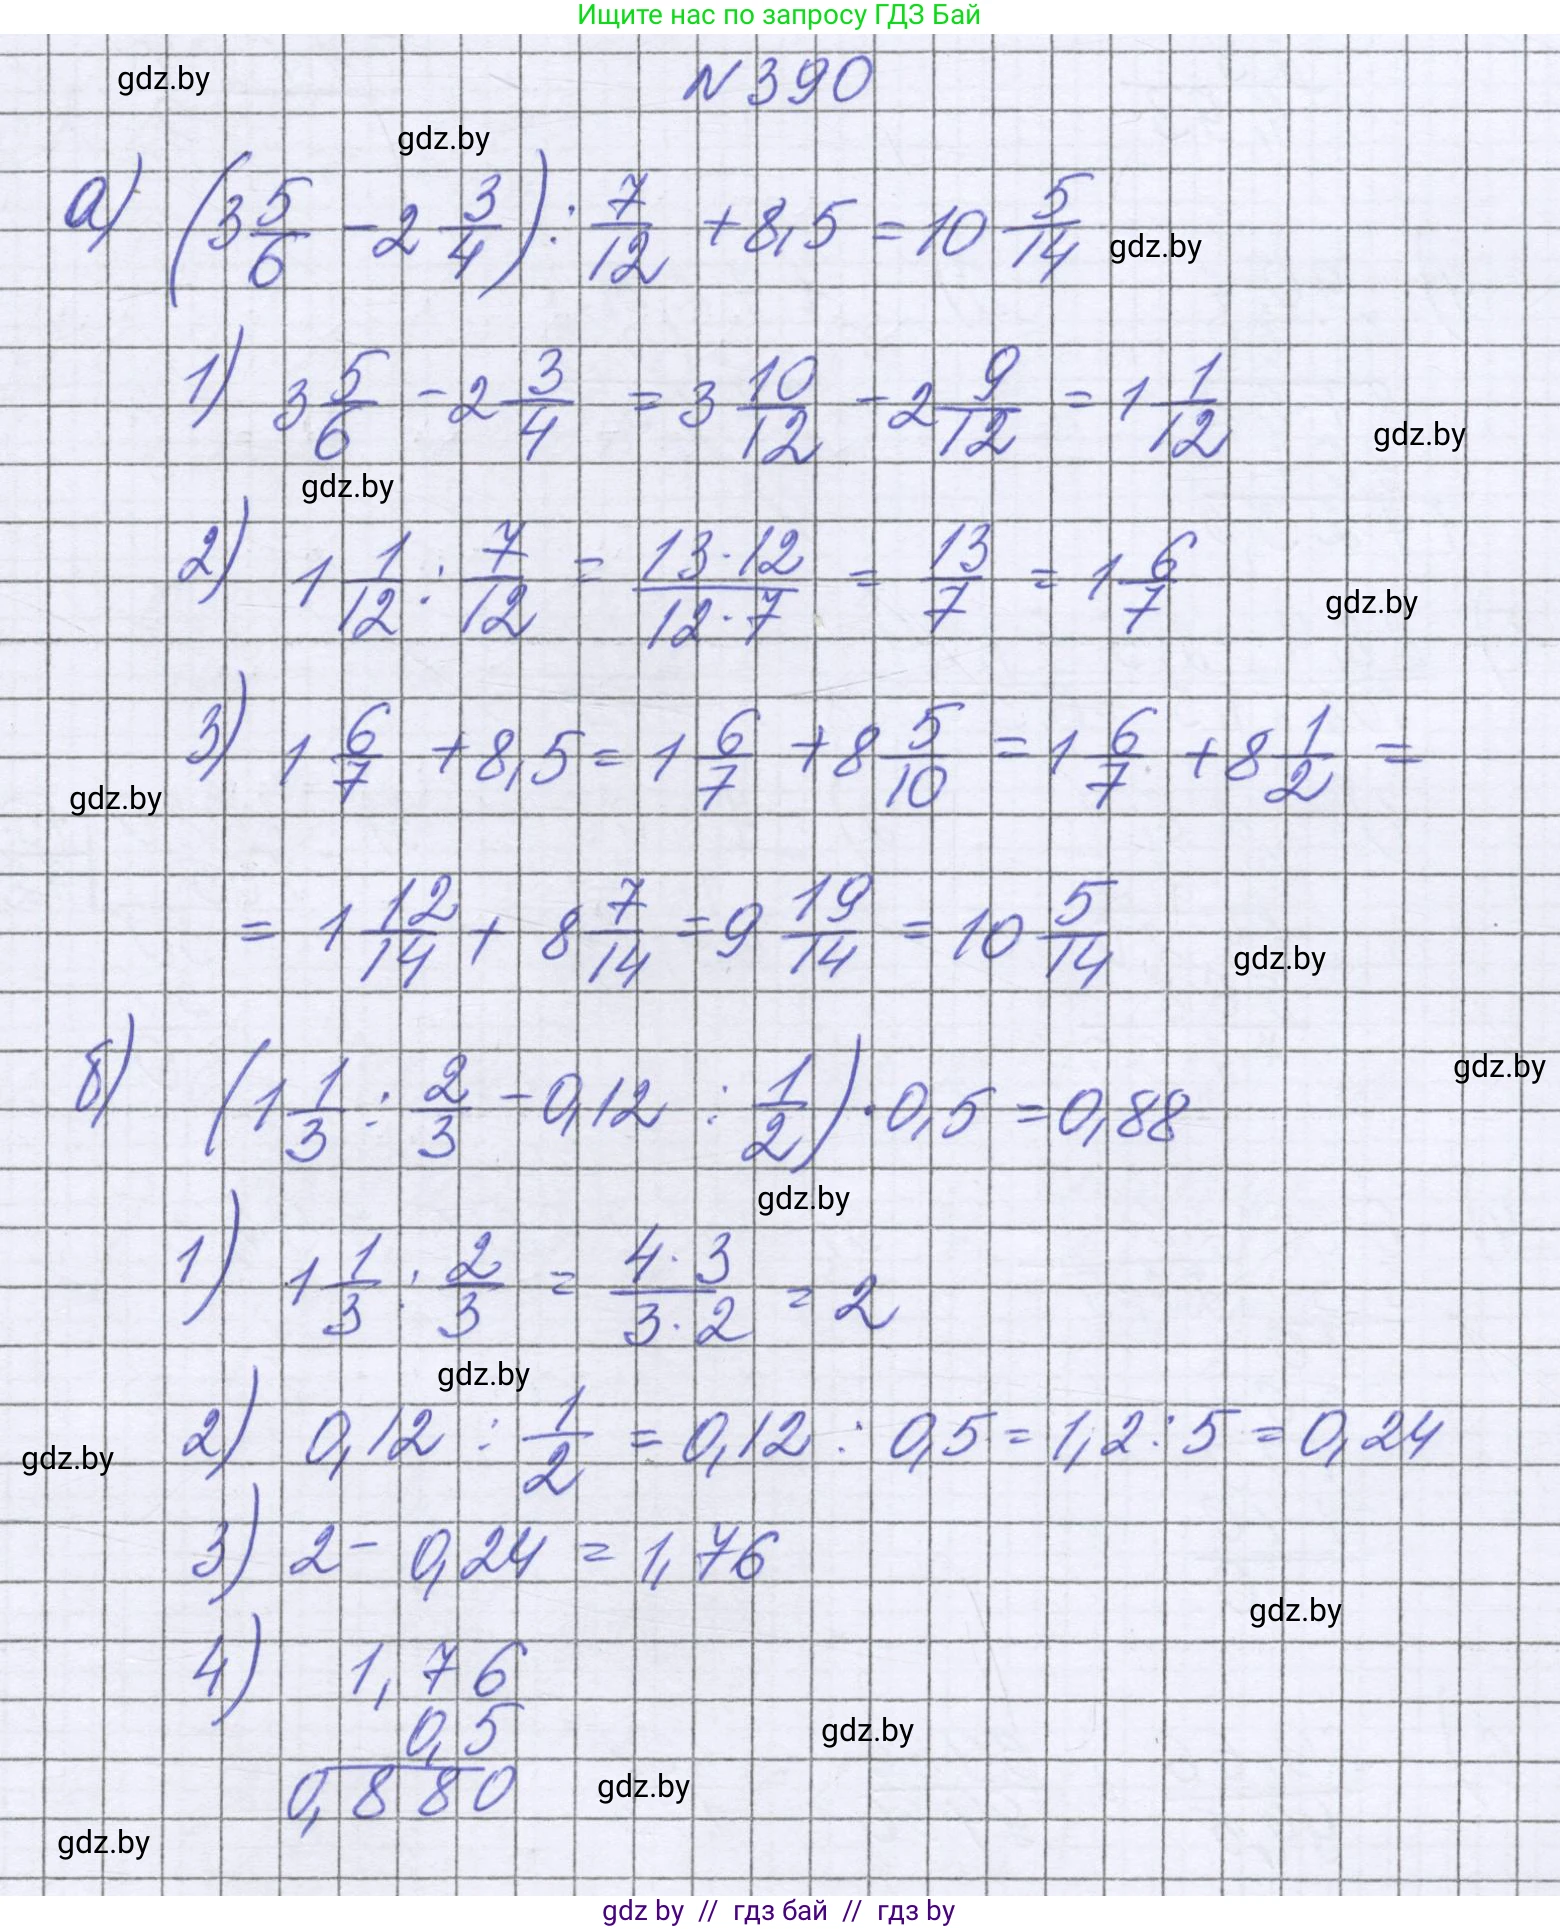 Ищите нас по запросу ГДЗ Бай
gdz.by
N 390
gdz.by
а) (3 5/6 - 2 3/4) : 7/12 + 8,5 = 10 5/14
gdz.by
1) 3 5/6 - 2 3/4 = 3 10/12 - 2 9/12 = 1 1/12
gdz.by
gdz.by
2) 1 1/12 : 7/12 = 13·12/12·7 = 13/7 = 1 6/7
gdz.by
3) 1 6/7 + 8,5 = 1 6/7 + 8 5/10 = 1 6/7 + 8 1/2 =
gdz.by
= 1 12/14 + 8 7/14 = 9 19/14 = 10 5/14
gdz.by
б) (1 1/3 : 2/3 - 0,12 : 1/2) · 0,5 = 0,88
gdz.by
gdz.by
1) 1 1/3 : 2/3 = 4·3/3·2 = 2
gdz.by
2) 0,12 : 1/2 = 0,12 : 0,5 = 1,2 : 5 = 0,24
gdz.by
3) 2 - 0,24 = 1,76
gdz.by
4) 1,76
0,5
gdz.by
0,880
gdz.by
gdz.by
gdz by // гдз бай // гдз by